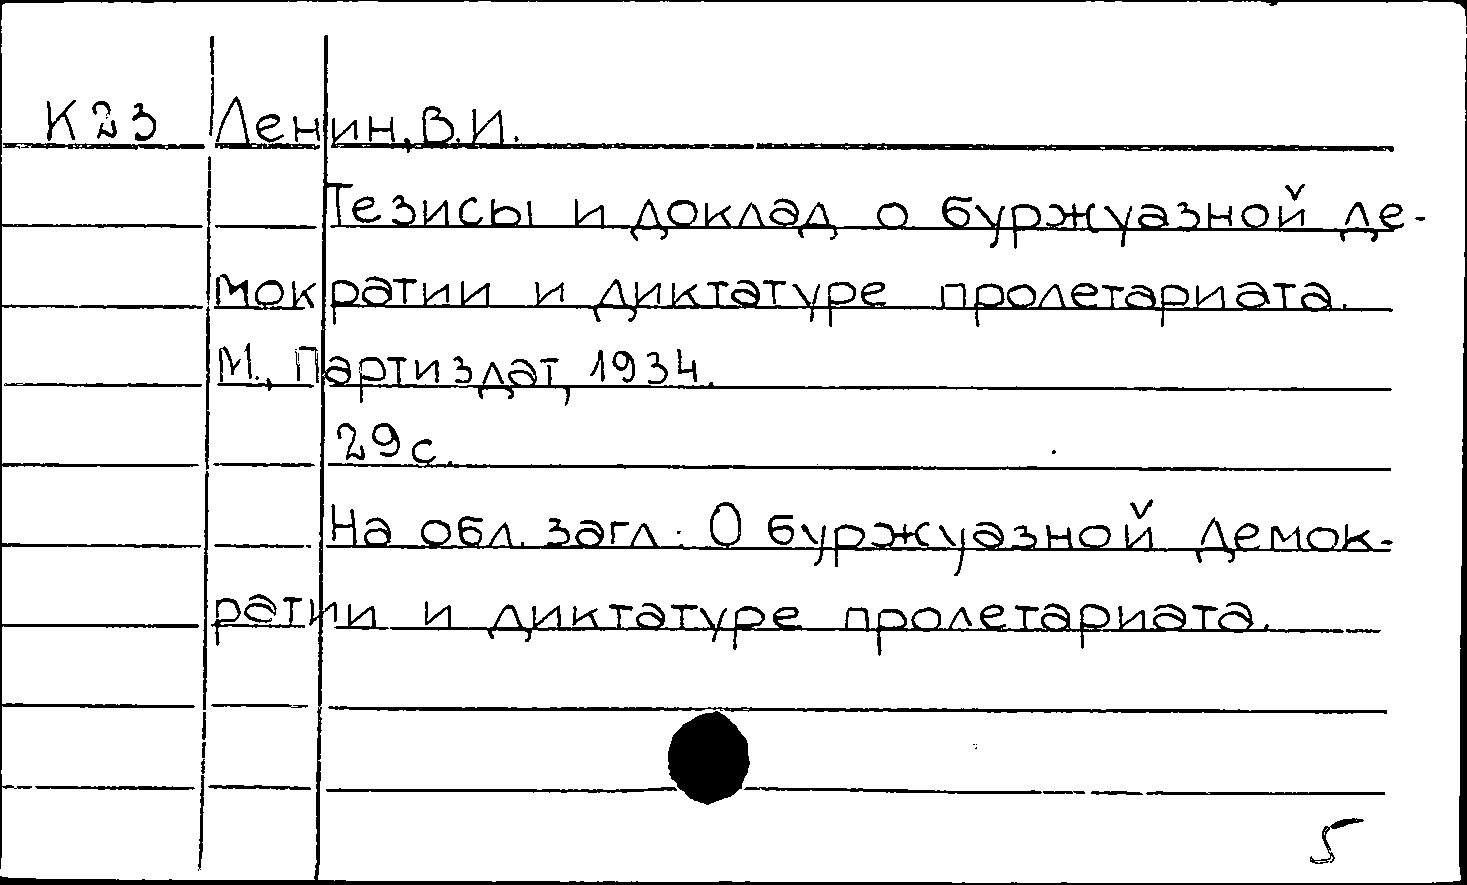 К23 Ленин, В.И.
Тезисы и доклад о буржуазной де-
мократии и диктатуре пролетариата.
М., Партиздат, 1934.
29 с.
На обл. загл.: О буржуазной демок-
ратии и диктатуре пролетариата.
5